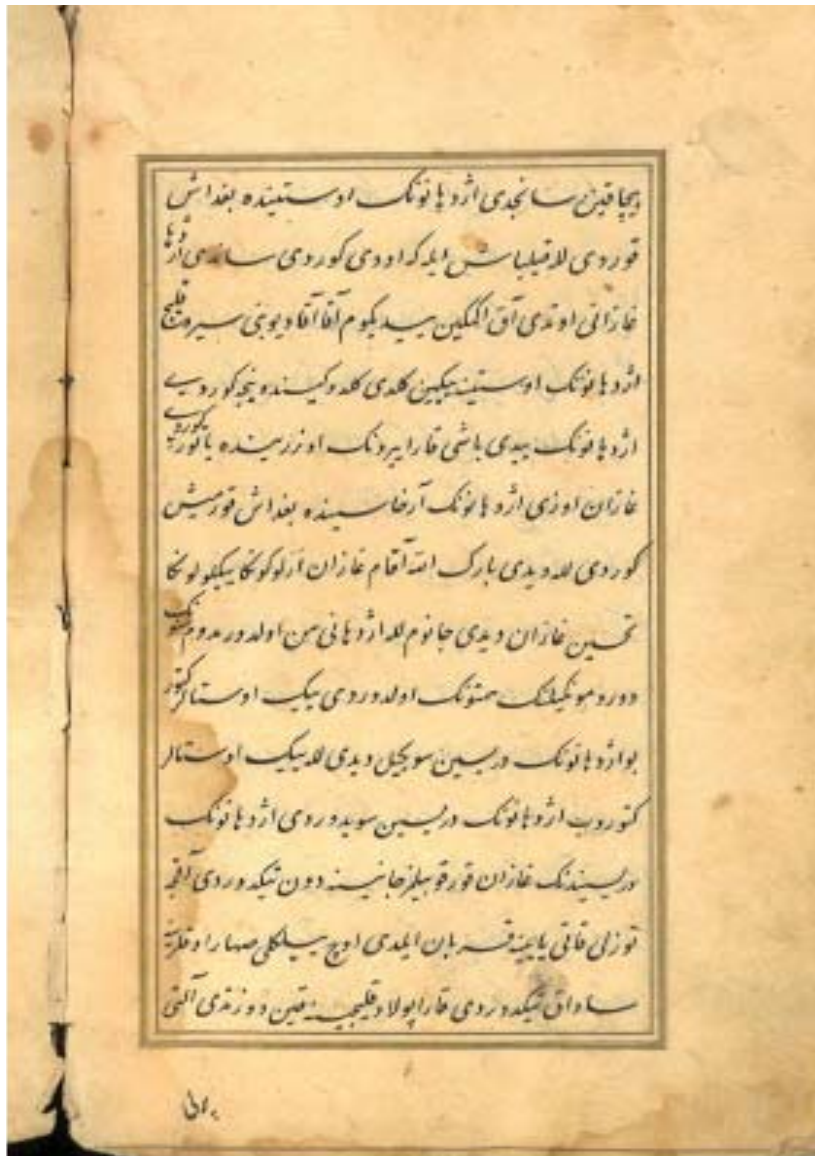 بچاقین سانجدی اژدهانونک اوستینده بغداش
قوردی لا قیلباش ایله که اودی کوردی ساندی اژدها
غازانی اوتدی آق اتمکین ییدیکوم آقا آقا دیوبنی سیردی قلیج
اژدهانونک اوستینه ییکین کلدی کلدوکینده ینجه کوردی
اژدهانونک ییدی باشی قارا ییرونک اوزرینده یاتور کوردی
غازان اوزی اژدهانونک آرخاسینده بغداش قورمیش
کوردی لله ویدی بارک الله آقام غازان ارلوکونکا بیکلولونکا
تحسین غازان ویدی جانوم لله اژدهانی من اولدورمدوم سنونک
دورومونکیلنک همتونک اولدوردی بیک اوستالر کتور
بو اژدهانونک دریسین سویجیل ویدی لله بیک اوستالر
کتوروب اژدهانونک دریسین سویدوردی اژدهانونک
دریسیندنک غازان قورقو بیلمز جانینه دون تیکدوردی آقجه
توزلی قاتی یایینه قربان ایلدی اوچ ییلکلی صهار اوقلرینه
ساداق تیکدوردی قارا پولاد قلیجینه قین دوزتدی آلتی